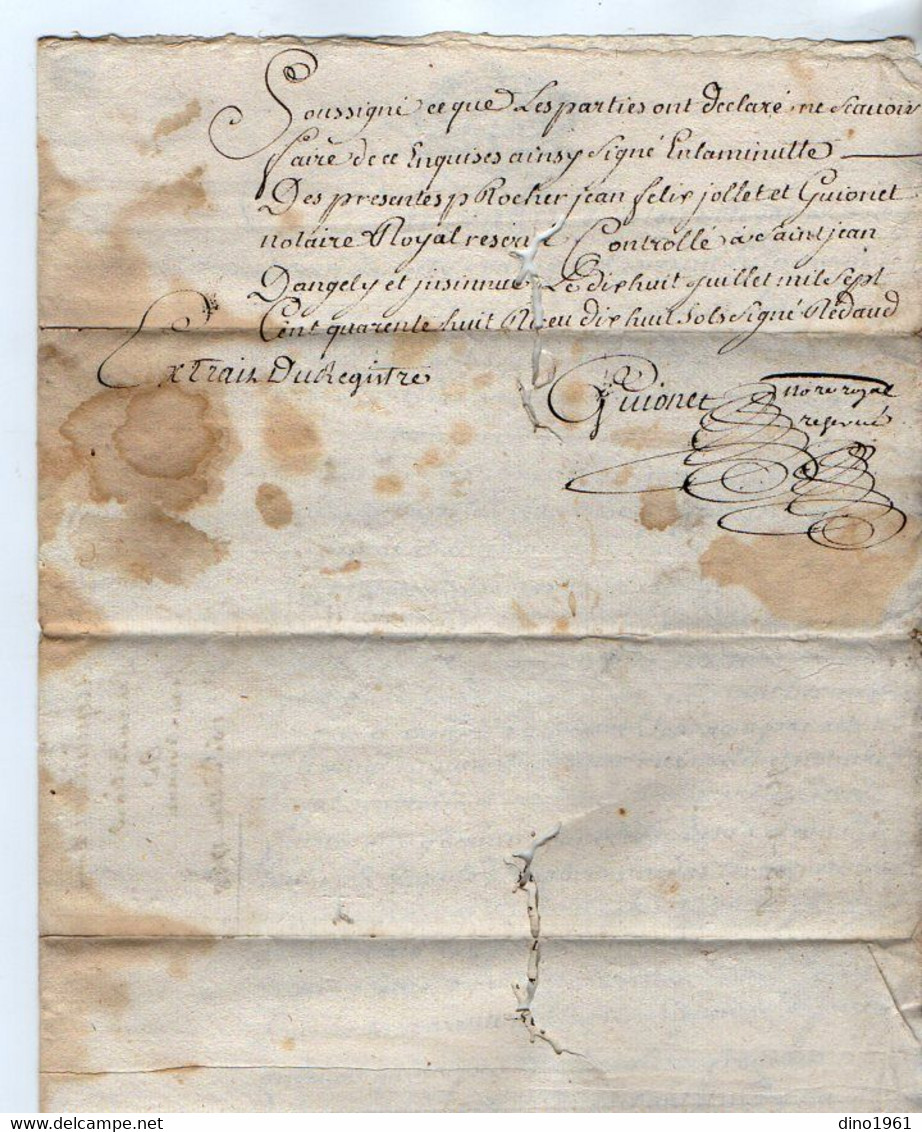 Soussigné ce que Les parties ont declaré ne Scauoir
faire de ce Enquises ainsy Signé En la minutte
Des presentes p Rocher jean felix jollet et Guionet
notaire Royal reserué Controllé a Saint jean
Dangely et jnsinué Le dix huit juillet mil sept
Cent quarente huit Receu dix huit sols Signé Rédaud
Extrait Du Registre
Guionet
no.re royal
reserué
dino1961